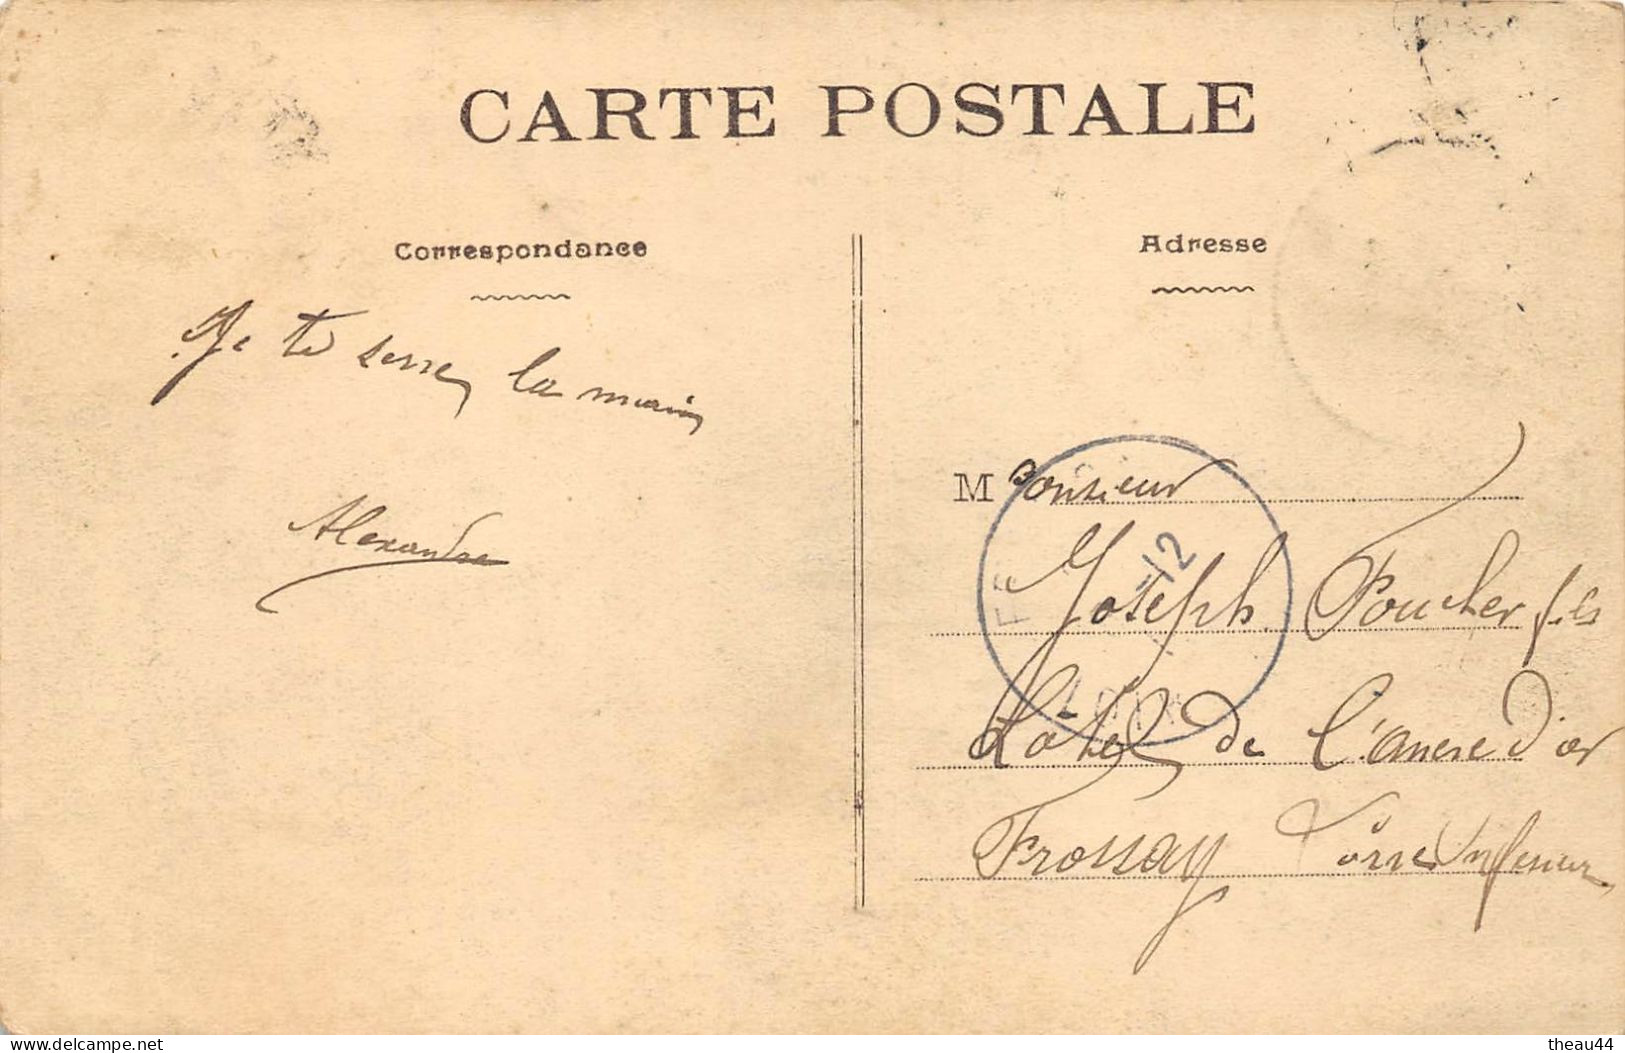 CARTE POSTALE
Correspondance
Je te serre la main
Alexandre
Adresse
Monsieur
Joseph Foucher fils
Hôtel de l'ancre d'or
Frossay Loire Inférieure
-12
delcampe.net
theau44